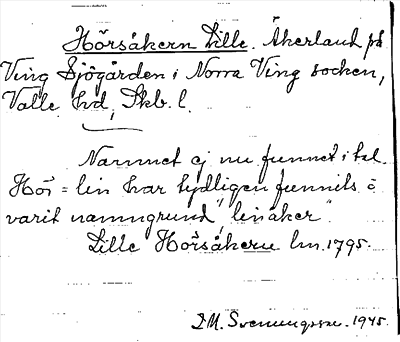 Hörsåkern Lille. Åkerland på
Ving Sjögården i Norra Ving socken,
Valle hd, Skb. l.
Namnet ej nu funnet i tal.
Hör = lin har tydligen funnits o
varit namngrund "linåker".
Lille Hörsåkern lm. 1795.
D.M. Svenungsson. 1945.